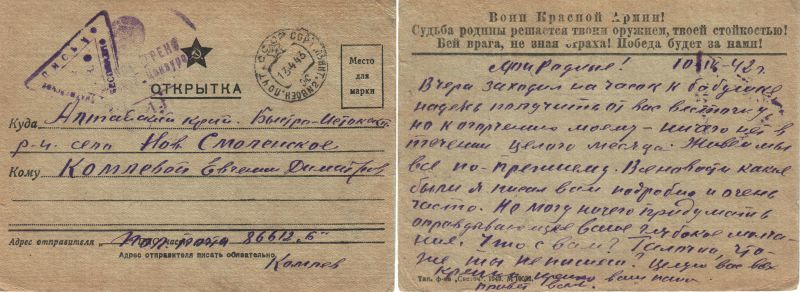 ПИСЬМО
БЕСПЛАТНО
ОТКРЫТКА
Место
для
марки
13 4 43
Куда Алтайский край. Быстро-Истокский
р-н. село Нов Смоленское
Кому Комлевой Евгении Дмитров
Адрес отправителя Пол почта 86612 „Б"
Адрес отправителя писать обязательно.
Комлев
Воин Красной Армии!
Судьба родины решается твоим оружием, твоей стойкостью!
Бей врага, не зная страха! Победа будет за нами!
Мои Родные! 10/IV-42 г.
Вчера заходил на часок к бабушке
надеясь получить от вас весточку
но к огорчению моему - ничего нет в
течении целого месяца. Живем мы
все по-прежнему. Все новости какие
были я писал вам подробно и очень
часто. Не могу ничего придумать
оправдывающее ваше глубокое молча-
ние. Что с вами? Галочка, что-
же ты не пишешь? Целую вас всех
крепко крепко ваш папа
привет всем.
Тип. ф-ки